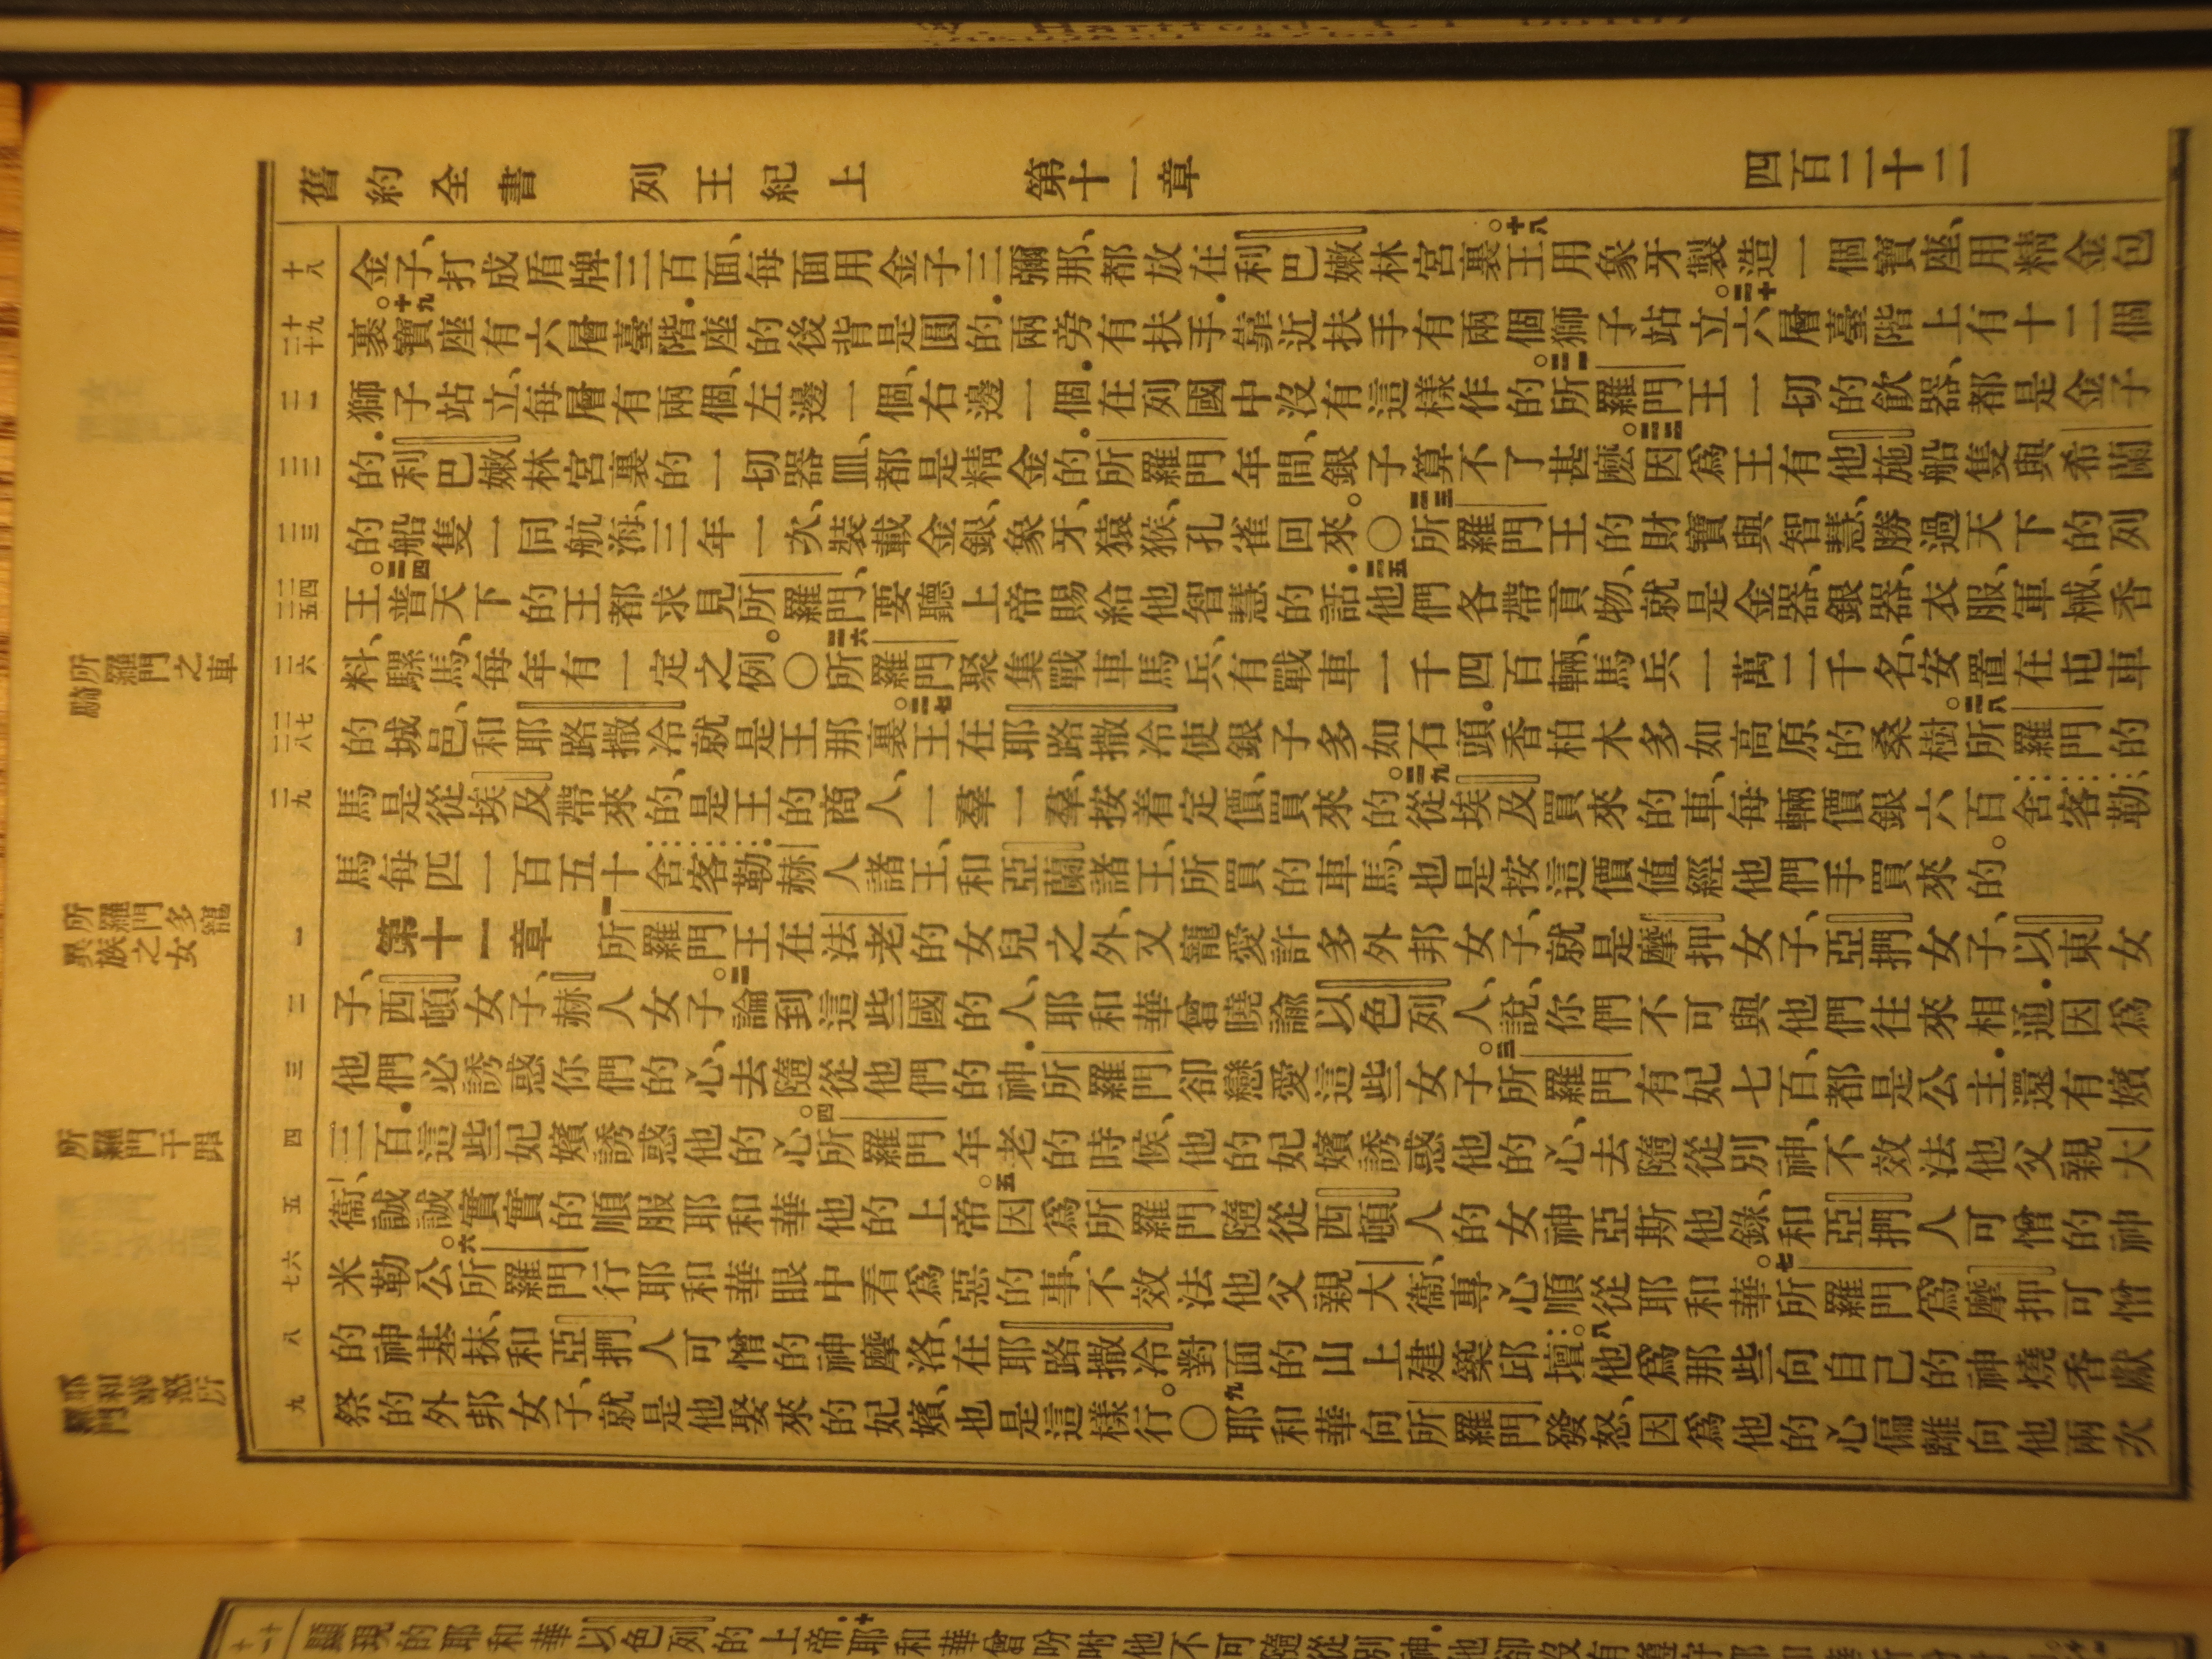 舊約全書 列王紀上 第十一章 四百二十二
十八 金子、打成盾牌三百面、每面用金子三彌那、都放在利巴嫩林宮裏。十八王用象牙製造一個寶座、用精金包
十九 二十 裹。十九寶座有六層臺階．座的後背是圓的．兩旁有扶手．靠近扶手有兩個獅子站立。二十六層臺階上有十二個
二一 獅子站立、每層有兩個、左邊一個、右邊一個．在列國中沒有這樣作的。二一所羅門王一切的飲器、都是金子
二二 的．利巴嫩林宮裏的一切器皿、都是精金的。所羅門年間、銀子算不了甚麽。二二因爲王有他施船隻與希蘭
二三 的船隻一同航海、三年一次、裝載金銀、象牙、猿猴、孔雀回來。〇二三所羅門王的財寶與智慧、勝過天下的列
二四 二五 王。二四普天下的王都求見所羅門、要聽上帝賜給他智慧的話．二五他們各帶貢物、就是金器、銀器、衣服、軍械、香
二六 料、騾馬、每年有一定之例。〇二六所羅門聚集戰車馬兵、有戰車一千四百輛、馬兵一萬二千名、安置在屯車
二七 二八 的城邑、和耶路撒冷、就是王那裏。二七王在耶路撒冷使銀子多如石頭．香柏木多如高原的桑樹。二八所羅門的
二九 馬是從埃及帶來的、是王的商人、一羣一羣、按着定價、買來的。二九從埃及買來的車、每輛價銀六百舍客勒．
馬每匹一百五十舍客勒．赫人諸王、和亞蘭諸王、所買的車馬、也是按這價值經他們手買來的。
一 第十一章 一所羅門王在法老的女兒之外、又寵愛許多外邦女子、就是摩押女子、亞捫女子、以東女
二 子、西頓女子、赫人女子。二論到這些國的人、耶和華曾曉諭以色列人、說、你們不可與他們往來相通．因爲
三 他們必誘惑你們的心、去隨從他們的神．所羅門卻戀愛這些女子。三所羅門有妃七百、都是公主．還有嬪
四 三百．這些妃嬪誘惑他的心。四所羅門年老的時候、他的妃嬪誘惑他的心、去隨從別神、不效法他父親大
五 衞、誠誠實實的順服耶和華他的上帝。五因爲所羅門隨從西頓人的女神亞斯他錄、和亞捫人可憎的神
六 七 米勒公。六所羅門行耶和華眼中看爲惡的事、不效法他父親大衞、專心順從耶和華。七所羅門爲摩押可憎
八 的神基抹、和亞捫人可憎的神摩洛、在耶路撒冷對面的山上建築邱壇。八他爲那些向自己的神燒香獻
九 祭的外邦女子、就是他娶來的妃嬪、也是這樣行。〇九耶和華向所羅門發怒、因爲他的心偏離向他兩次
所羅門之車
騎
所羅門多寵
異族之女
所羅門干罪
顯現的耶和華以色列的上帝．十耶和華曾吩咐他不可隨從別神．他卻沒有遵守